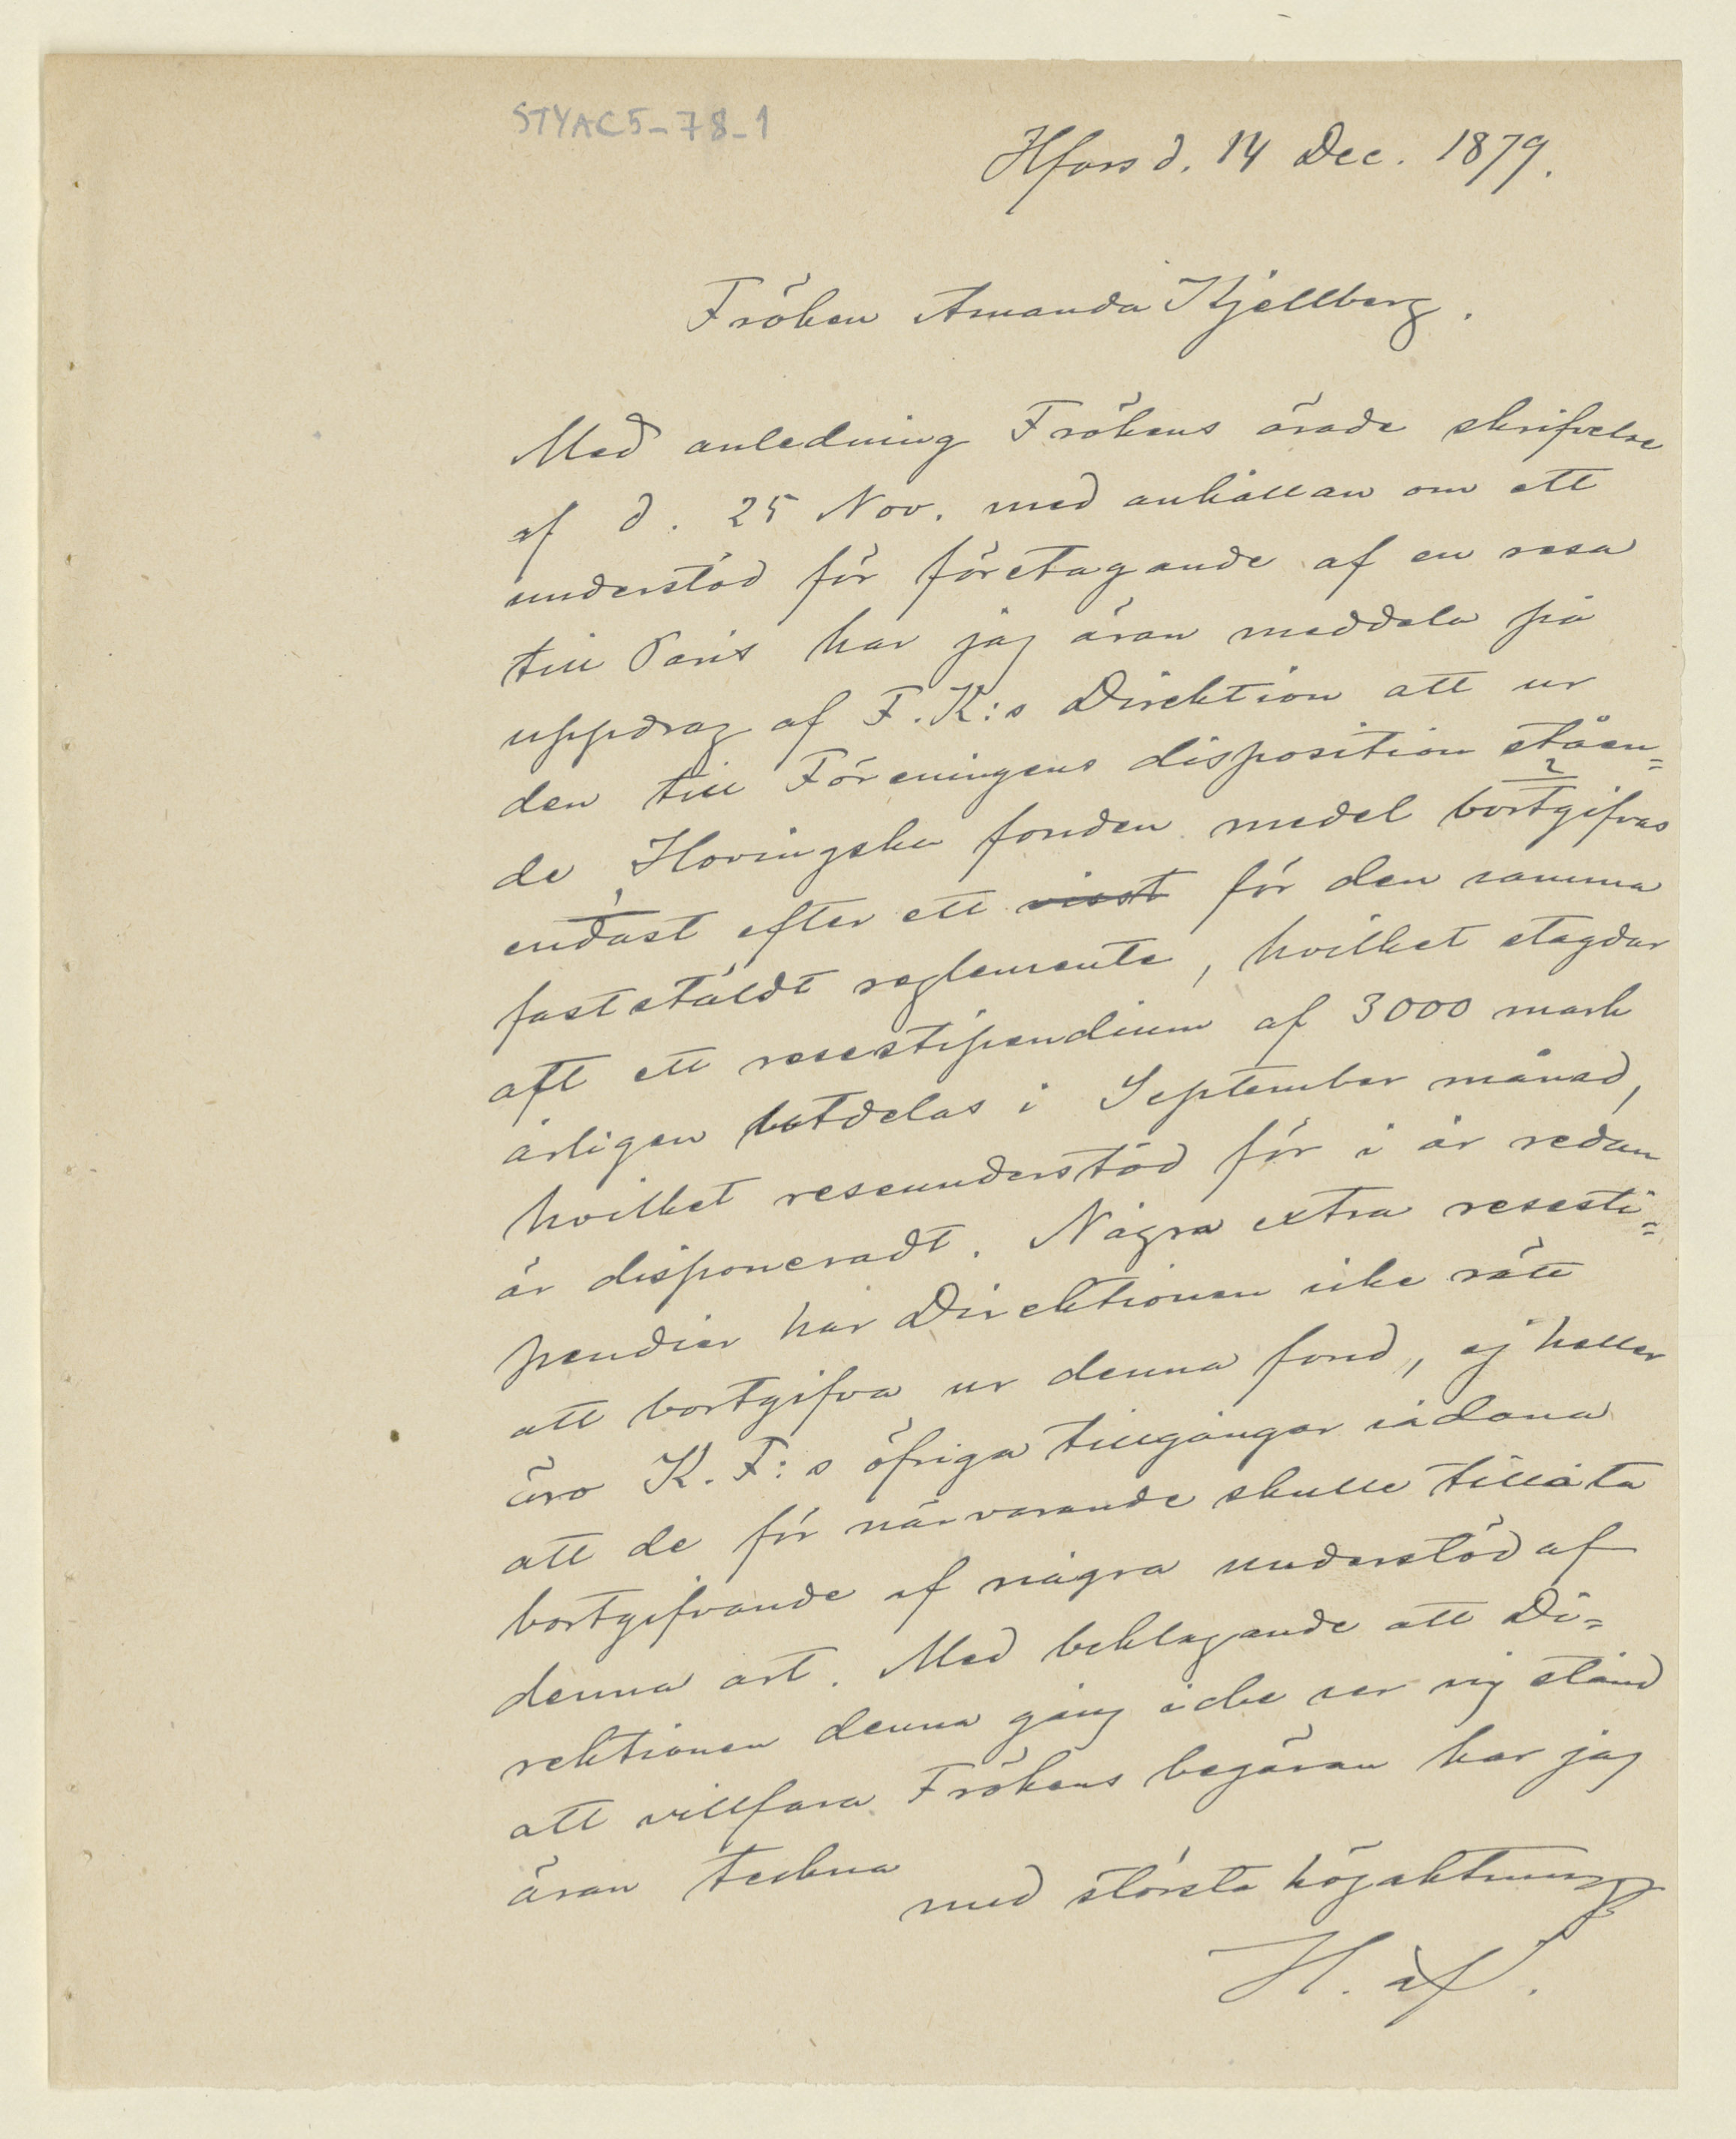 STYAC5-78-1
Hfors d. 14 Dec. 1879.
Fröken Amanda Kjellberg.
Med anledning Frökens ärade skrifvelse
af d. 25 Nov. med anhållan om ett
understöd för företagande af en resa
till Paris har jag äran meddela på
uppdrag af F.K:s Direktion att ur
den till Föreningens disposition ståen=
de Hovingska fonden medel bortgifvas
2
1
endast efter ett visst för den samma
faststäldt reglemente, hvilket stagdar
att ett resestipendium af 3000 mark
årligen utdelas i September månad,
hvilket reseunderstöd för i år redan
är disponeradt. Några extra resesti=
pendier har Direktionen icke rätt
att bortgifva ur denna fond, ej heller
äro K.F:s öfriga tillgångar sådana
att de för närvarande skulle tillåta
bortgifvande af några understöd af
denna art. Med beklagande att Di=
rektionen denna gång icke ser sig stånd
att villfara Frökens begäran har jag
äran teckna
med största högaktning
H. af.